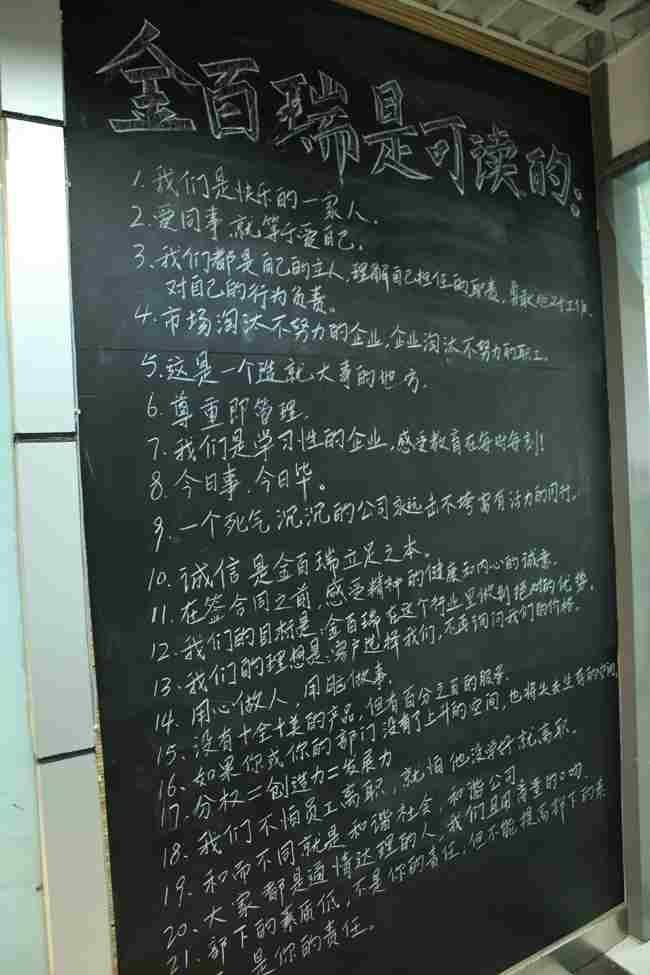 金百瑞是可读的:
1、我们是快乐的一家人.
2、爱同事就等于爱自己。
3、我们都是自己的主人,理解自己担任的职责,勇敢地工作、
对自己的行为负责。
4、市场淘汰不努力的企业,企业淘汰不努力的职工。
5、这是一个造就大事的地方.
6、尊重即管理.
7、我们是学习性的企业,感受教育在每时每刻!
8、今日事,今日毕。
9、一个死气沉沉的公司永远击不垮富有活力的同行.
10、诚信是金百瑞立足之本。
11、在签合同之前,感受精神的健康和内心的诚意.
12、我们的目标是:金百瑞在这个行业里做到绝对的优势。
13、我们的理想是:客户选择我们,不再询问我们的价格。
14、用心做人,用脑做事.
15、没有十全十美的产品,但有百分之百的服务.
16、如果你或你的部门没有了上升的空间,也将失去生存的空间.
17、分权=创造力=发展力
18、我们不怕员工离职,就怕他没学好就离职。
19、和而不同就是和谐社会,和谐公司
20、大家都是通情达理的人,我们且用尊重的口吻.
21、部下的素质低,不是你的责任,但不能提高部下的素
是你的责任。